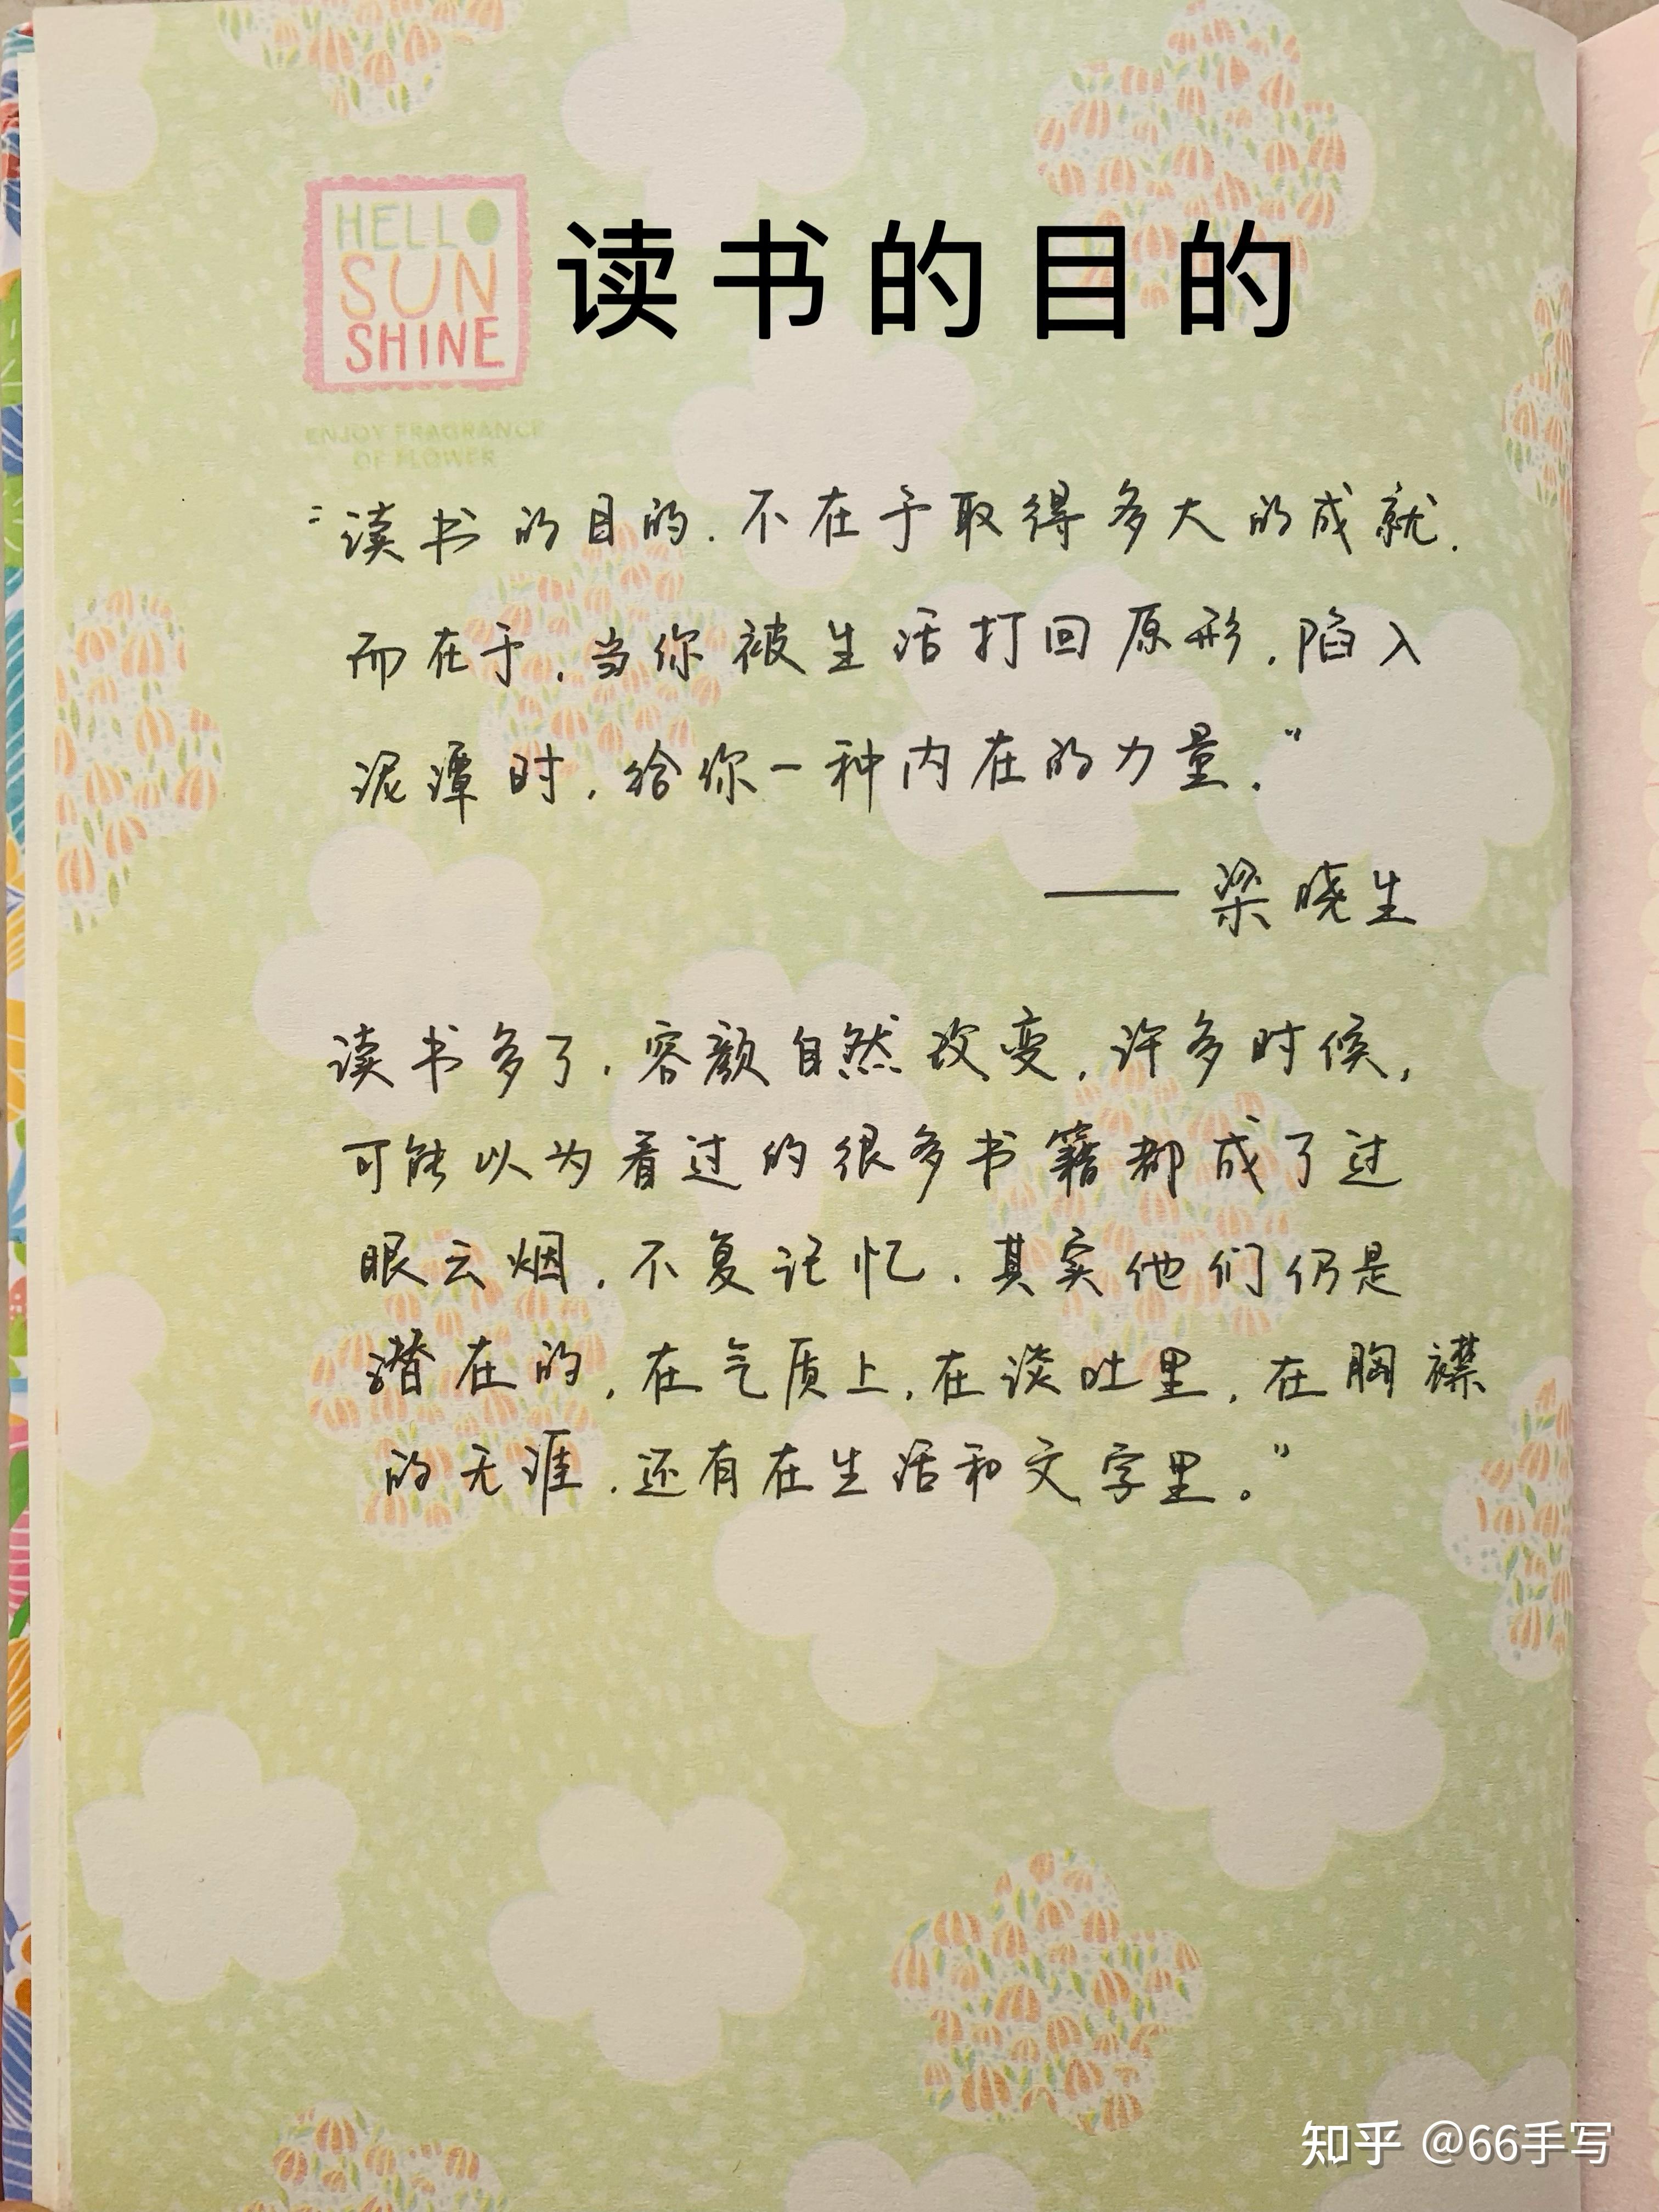 HELLO
SUN
SHINE
读书的目的
ENJOY FRAGRANCE
OF FLOWER
“读书的目的.不在于取得多大的成就.
而在于.当你被生活打回原形.陷入
泥潭时.给你一种内在的力量.”
——梁晓生
读书多了.容颜自然改变.许多时候,
可能以为看过的很多书籍都成了过
眼云烟.不复记忆.其实他们仍是
潜在的,在气质上.在谈吐里.在胸襟
的无涯.还有在生活和文字里。”
知乎 @66手写